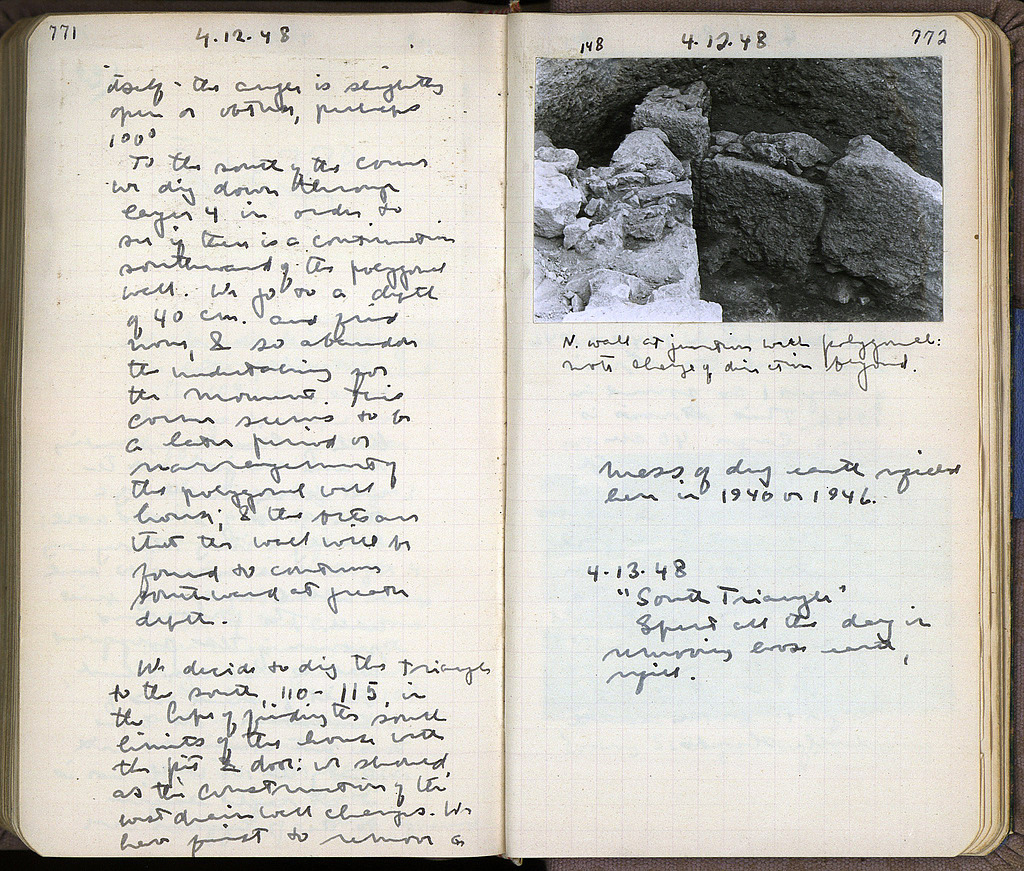 771
4.12.48
itself - the angle is slightly
open or obtuse, perhaps
100°
To the south of the corner
we dig down through
layer 4 in order to
see if there is a continuation
southward of the polygonal
wall. We go to a depth
of 40 cm. and find
none, & so abandon
the undertaking for
the moment. This
corner seems to be
a later period or
rearrangement of
the polygonal wall
house; & the
that the wall will be
found to continue
southward at greater
depth.
We decide to dig the triangle
to the south, 110-115, in
the hope of finding the south
limits of the house with
the pit & door: we should,
as the construction of the
west drain wall changes. We
have first to remove a
772
148
4.12.48
N. wall at junction with polygonal:
note change of direction beyond.
mass of dug earth
here in 1940 or 1946.
4.13.48
"South Triangle"
Spent all the day in
removing loose earth,